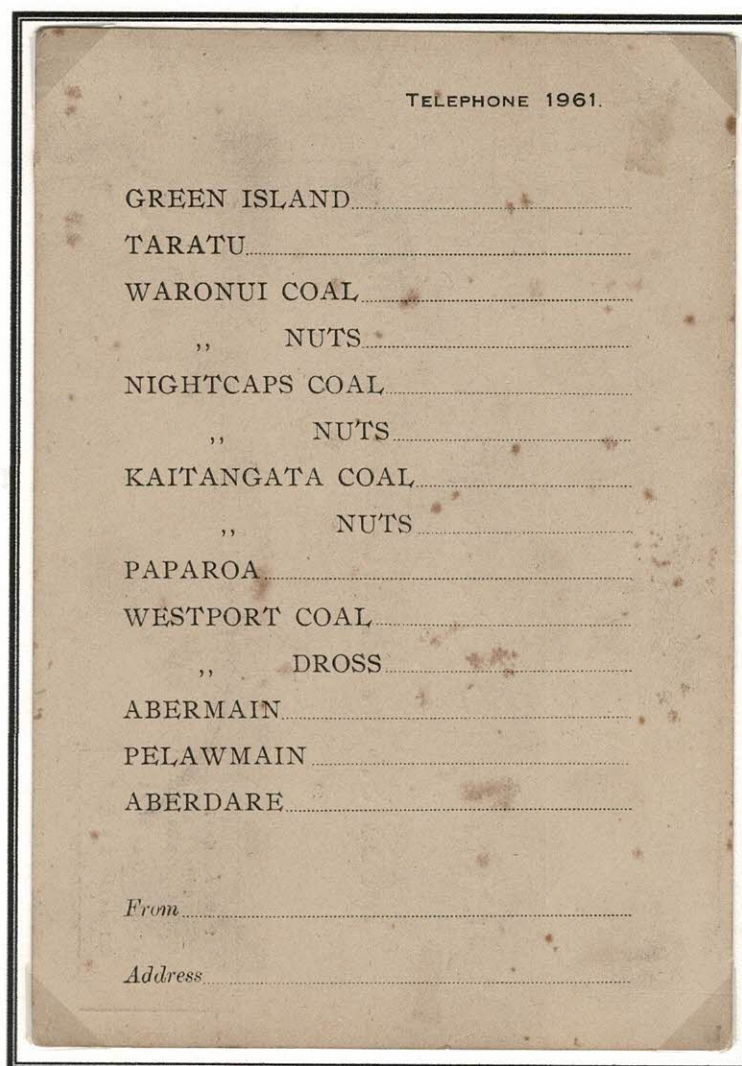 TELEPHONE 1961.
GREEN ISLAND
TARATU
WARONUI COAL
,, NUTS
NIGHTCAPS COAL
,, NUTS
KAITANGATA COAL
,, NUTS
PAPAROA
WESTPORT COAL
,, DROSS
ABERMAIN
PELAWMAIN
ABERDARE
From
Address